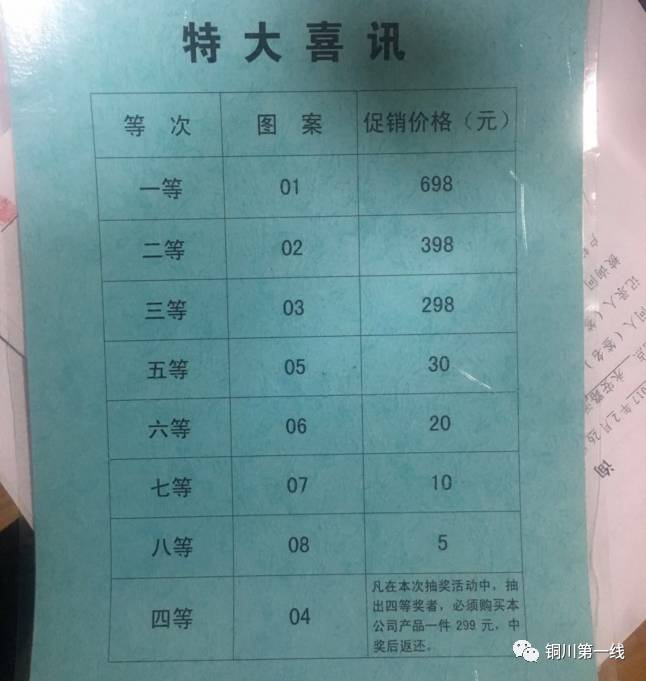 特大喜讯
等 次 图 案 促销价格（元）
一等 01 698
二等 02 398
三等 03 298
五等 05 30
六等 06 20
七等 07 10
八等 08 5
四等 04
凡在本次抽奖活动中，抽
出四等奖者，必须购买本
公司产品一件 299 元，中
奖后返还。
被询问
记录人（签
问人（签名）
询
铜川第一线